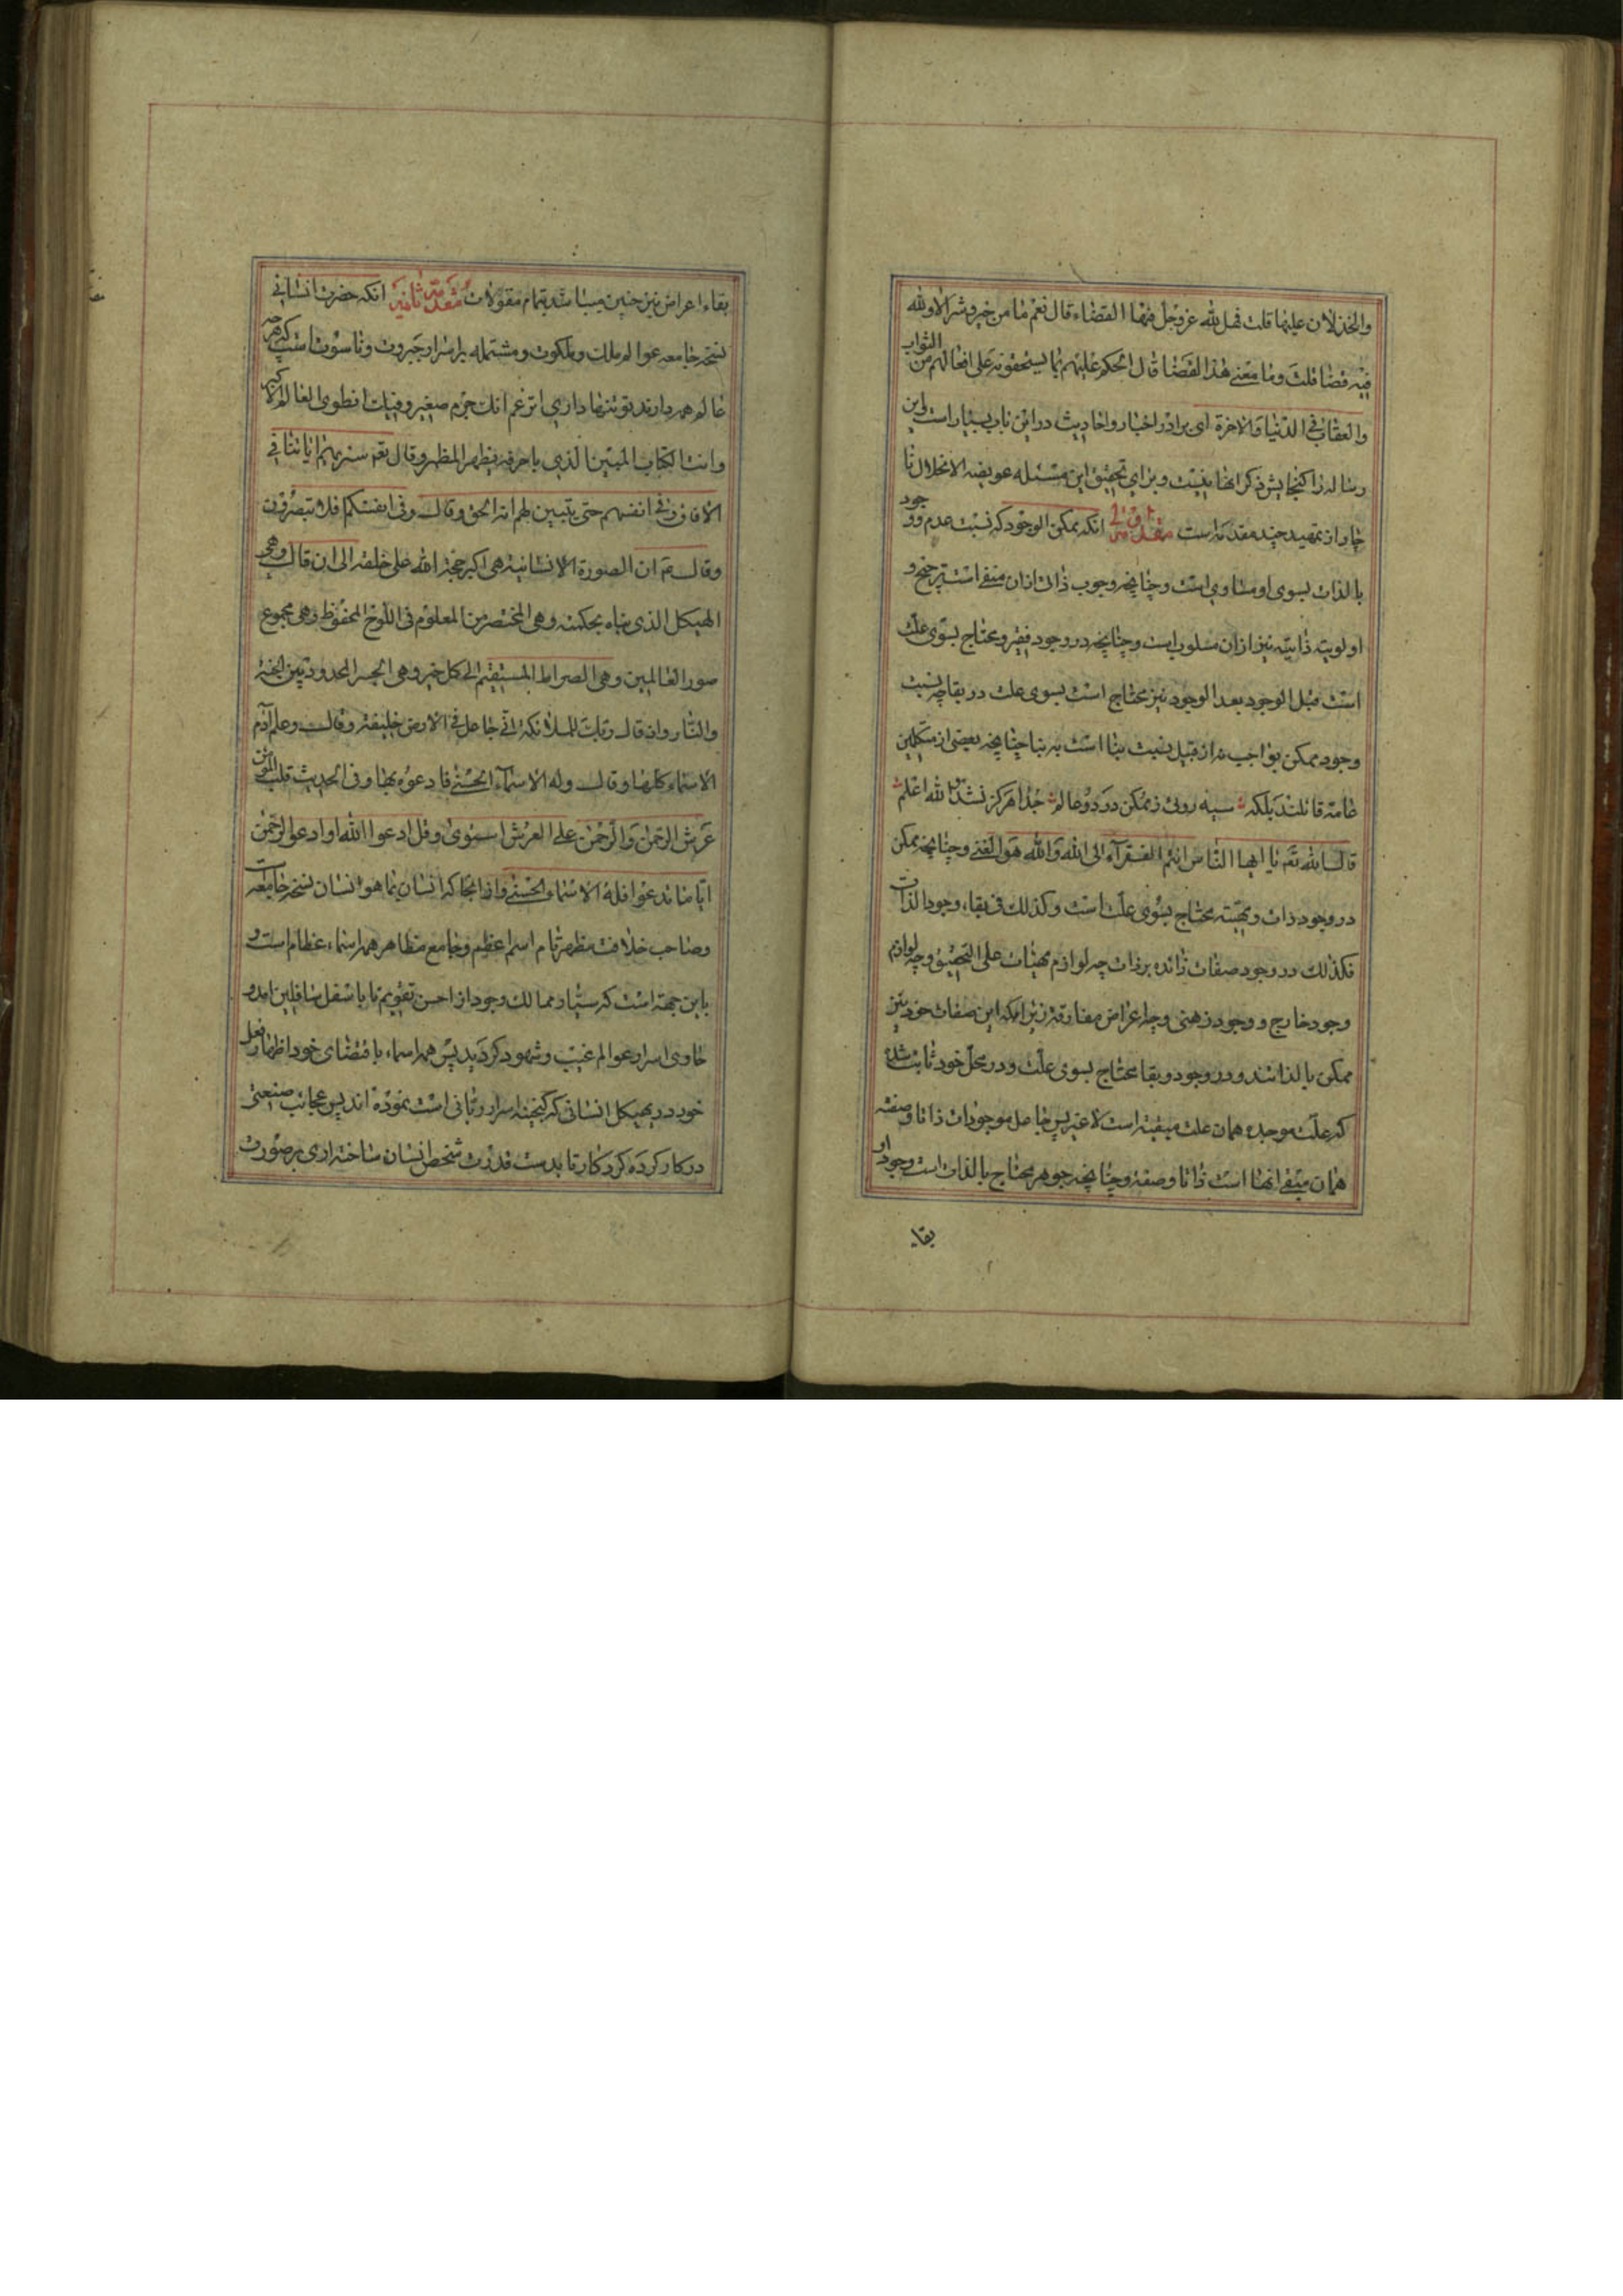 والخذلان علیها قلت فهل لله عزوجل فیها القضاء قال نعم ما من خیر و شر الا ولله
فیه قضا قلت وما معنی هذا القضا قال الحکم علیهم بما یستحقونه علی افعالهم من الثواب
والعقاب فی الدنیا والاخرة ای برادر اخبار واحادیث در این باب بسیار است واین
رساله را کنجایش ذکر انها نیست و برای تحقیق این مسئله عویصه الانحلال نا
چار از تمهید چند مقدمه است مقدمه اولی انکه ممکن الوجود که نسبت عدم و وجود
بالذات بسوی او مساوی است وچنانچه وجوب ذاتی ازان منفی است ترجیح و
اولویته ذاتیه نیز ازان مسلوب است وچنانچه در وجود فقیر ومحتاج بسوی علت
است قبل الوجود بعد الوجود نیز محتاج است بسوی علت در بقا چه نسبت
وجود ممکن بواجب نه از قبیل نسبت بنا است به بنا چنانچه بعضی از متکلمین
عامه قائلند بلکه سیه روئی ز ممکن در دو عالم جدا هرکز نشد والله اعلم
قال الله تعم یا ایها الناس انتم الفقرآء الی الله والله هو الغنی وچنانچه ممکن
در وجود ذات و مهیته محتاج بسوی علت است وکذلک فی بقاء وجود الذات
فکذلک در وجود صفات زائده بر ذات چه لوازم مهیات علی التحقیق وچه لوازم
وجود خارج و وجود ذهنی وچه اعراض مفارقه زیرا که این صفات خود نیز
ممکن بالذاتند و در وجود و بقا محتاج بسوی علت و در محل خود ثابت شده
که علت موجده همان علت مبقیه است لا غیر پس جاعل موجودات ذاتا وصفته
همان مبقی انها است ذاتا وصفته وچنانچه جوهر محتاج بالذات است وجود او
بقاء
بقاء اعراض نیز چنین میباشد بتمام مقولات مقدمه ثانیه انکه حضرت انسانی
نسخه جامعه عوالم ملک و ملکوت ومشتمله بر اسرار جبروت وناسوت است که هرچه
عالم همه دارند تو تنها داری اتزعم انک جرم صغیر وفیک انطوی العالم الاکبر
وانت الکتاب المبین الذی باحرفه یظهر المظهر وقال تعم سنریهم ایاتنا فی
الافاق وفی انفسهم حتی یتبین لهم انه الحق وقال وفی انفسکم افلا تبصرون
وقال عم ان الصورة الانسانیة هی اکبر حجة الله علی خلقه الی ان قال وهی
الهیکل الذی بناه بحکمته وهی المختصر من المعلوم فی اللوح المحفوظ وهی مجموع
صور العالمین وهی الصراط المستقیم الی کل خیر وهی الجسر المحدود بین الجنة
والنار واذ قال ربک للملائکة انی جاعل فی الارض خلیفة وقال وعلم آدم
الاسماء کلها وقال وله الاسمآء الحسنی فادعوه بها وفی الحدیث قلب المؤمن
عرش الرحمن والرحمن علی العرش استوی وقل ادعوا الله او ادعوا الرحمن
ایا ما تدعوا فله الاسماء الحسنی واز انجا که انسان بما هو انسان نسخه جامعه است
وصاحب خلافت مظهر تام اسم اعظم وجامع مظاهر همه اسماء عظام است و
باین جهته است که سیار ممالک وجود از احسن تقویم تا باسفل سافلین امد و
حاوی اسرار عوالم غیب وشهود کردید پس همه اسماء باقتضای خود اظهار فعل
خود در هیکل انسانی که کنجینه اسرار ربانی است نموده اند پس عجائب صنعتی
در کار کرده کردکار تا بدست قدرت شخص انسان ساخته اری بر صورت